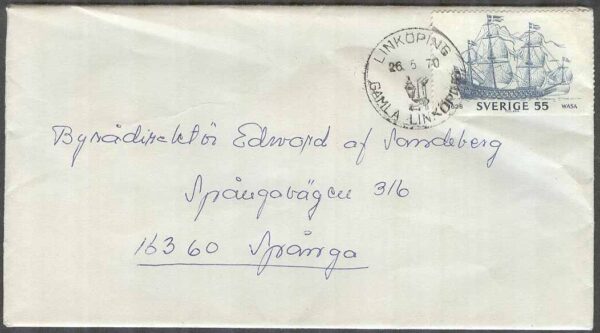 LINKÖPING
26 5 70
GAMLA LINKÖPING
SVERIGE 55
WASA
Byrådirektör Edward af Sandeberg
Spångavägen 316
163 60 Spånga